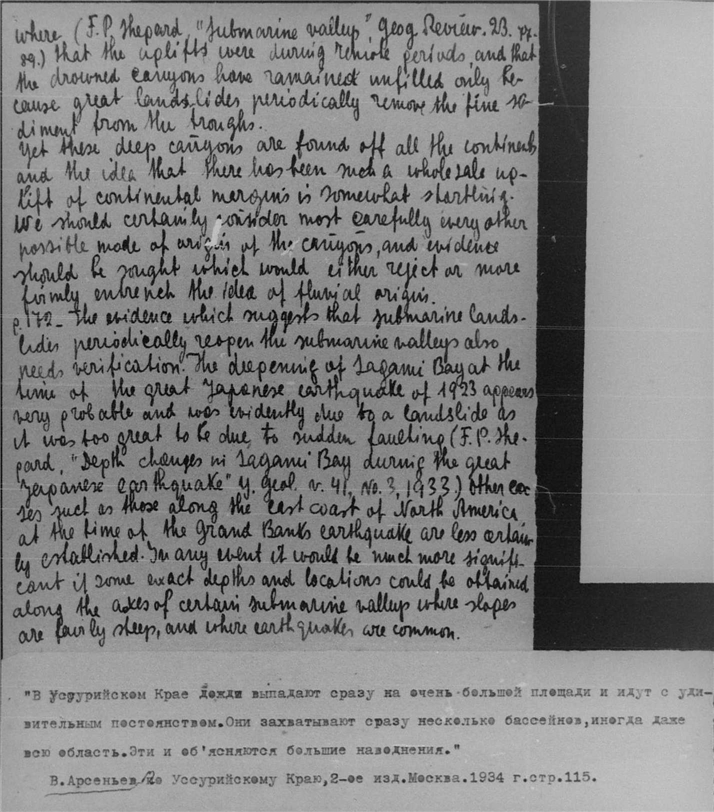 where (F.P. Shepard, "Submarine valleys", Geog. Review. 23. pp.
89.) that the uplifts were during remote periods, and that
the drowned canyons have ramained unfilled only be-
cause great landslides periodically remove the fine se-
diment from the troughs.
Yet these deep canyons are found off all the continents
and the idea that there has been such a whole sale up-
lift of continental margins is somewhat startling.
We should certainly consider most carefully every other
possible mode of origin of the canyons, and evidence
should be sought which would either reject or more
firmly entrench the idea of fluvial origin.
p. 172_ The evidence which suggests that submarine lands-
lides periodically reopen the submarine valleys also
needs verification. The deepening of Sagami Bay at the
time of the great Japanese earthquake of 1923 appears
very probable and was evidently due to a landslide as
it was too great to be due to sudden faulting (F.P. She-
pard, "Depth changes in Sagami Bay during the great
Japanese earthquake" J. Geol. v. 41, No. 3, 1933.) Other ca-
ses such as those along the east coast of North America
at the time of the Grand Banks earthquake are less certain-
ly established. In any event it would be much more signifi-
cant if some exact depths and locations could be obtained
along the axes of certain submarine valleys where slopes
are fairly steep, and where earthquakes are common.
"В Уссурийском Крае дожди выпадают сразу на очень большой площади и идут с уди-
вительным постоянством.Они захватывают сразу несколько бассейнов,иногда даже
всю область.Эти и об'ясняются большие наводнения."
В.Арсеньев По Уссурийскому Краю,2-ое изд.Москва.1934 г.стр.115.